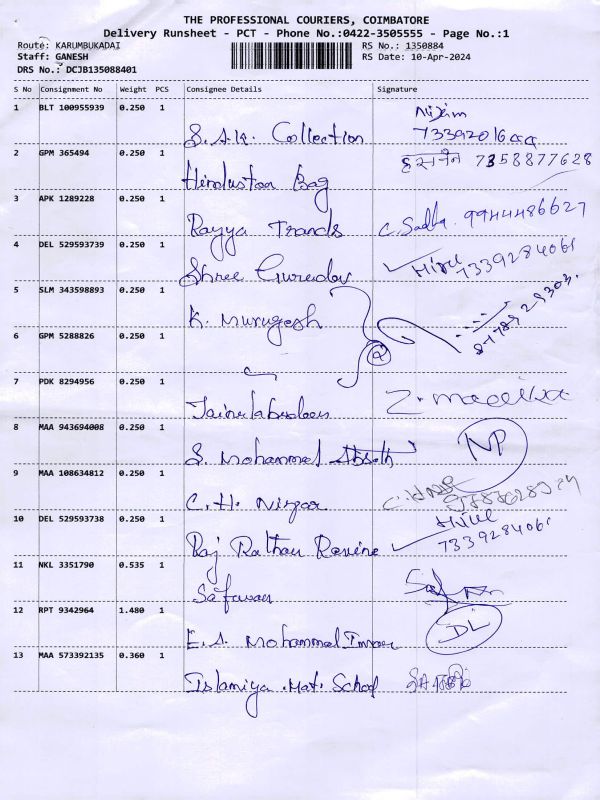 THE PROFESSIONAL COURIERS, COIMBATORE
Delivery Runsheet - PCT - Phone No.:0422-3505555 - Page No.:1
Route: KARUMBUKADAI RS No.: 1350884
Staff: GANESH RS Date: 10-Apr-2024
DRS No.: DCJB135088401
S No Consignment No Weight PCS Consignee Details Signature
1 BLT 100955939 0.250 1
S.A.K. Collection
2 GPM 365494 0.250 1 7358877628
Hindustan Bag
3 APK 1289228 0.250 1
Rayya Trands C. Sadha 9944486627
4 DEL 529593739 0.250 1
Shree Gurudev 7339284061
5 SLM 343598893 0.250 1
K. Murugesh
6 GPM 5288826 0.250 1
7 PDK 8294956 0.250 1
8 MAA 943694008 0.250 1 NP
S. Mohammed
9 MAA 108634812 0.250 1
C.H.
10 DEL 529593738 0.250 1 7339284061
Raj Rathan
11 NKL 3351790 0.535 1
Safuwan
12 RPT 9342964 1.480 1 DL
E.S. Mohammed
13 MAA 573392135 0.360 1
Islamiya Mat. School